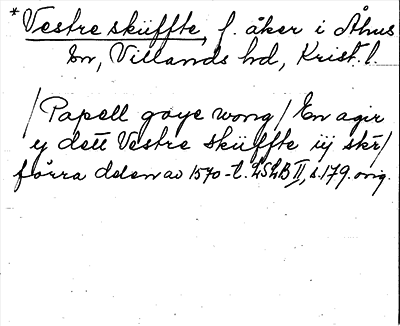 *Vestre sküffte, f. åker i Åhus
sn, Villands hd, Krist. l.
/Papell gaye wong/ En agir
y dett Vestre sküffte iij skr/
förra delen av 1570-t. LSkB II, s. 179. orig.